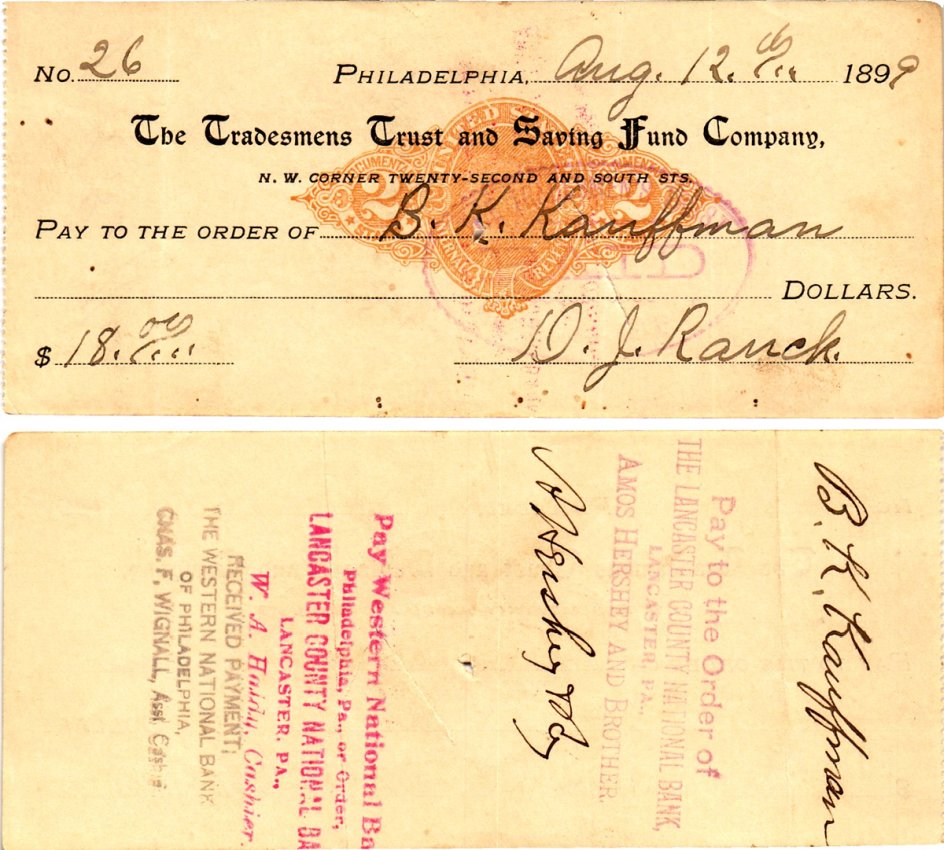 No. 26 PHILADELPHIA, Aug. 12.th 1899
The Tradesmens Trust and Saving Fund Company,
N. W. CORNER TWENTY-SECOND AND SOUTH STS.
PAY TO THE ORDER OF B. K. Kauffman
DOLLARS.
$ 18.00 D. J. Ranck.
DOCUMENTARY
2 2
B. K. Kauffman
Pay to the Order of
THE LANCASTER COUNTY NATIONAL BANK,
LANCASTER, PA.,
AMOS HERSHEY AND BROTHER.
Hershey
Pay Western National Ba
Philadelphia, Pa., or Order,
LANCASTER COUNTY NATIONAL BA
LANCASTER, PA.,
W. A. Cashier.
RECEIVED PAYMENT;
THE WESTERN NATIONAL BANK
OF PHILADELPHIA,
CHAS. F. WIGNALL, Asst. Cashr